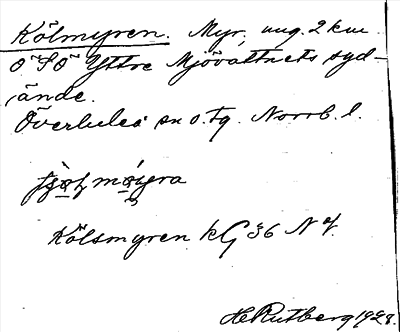 Kölmyren. Myr, ung. 2 km.
O SO Yttre Mjövattnets syd-
ände.
Överluleå sn o. tg. Norrb. l.
Kölsmyren kG 36 NV.
H. Rutberg 1928.